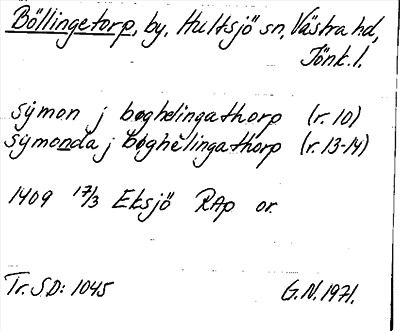 Böllingetorp, by, Hultsjö sn, Västra hd,
Jönk. l.
sÿmon j bøghelingathorp (r. 10)
sÿmonda j bøghelingathorp (r. 13-14)
1409 17/3 Eksjö RAp or.
Tr. SD: 1045
G.N. 1971.